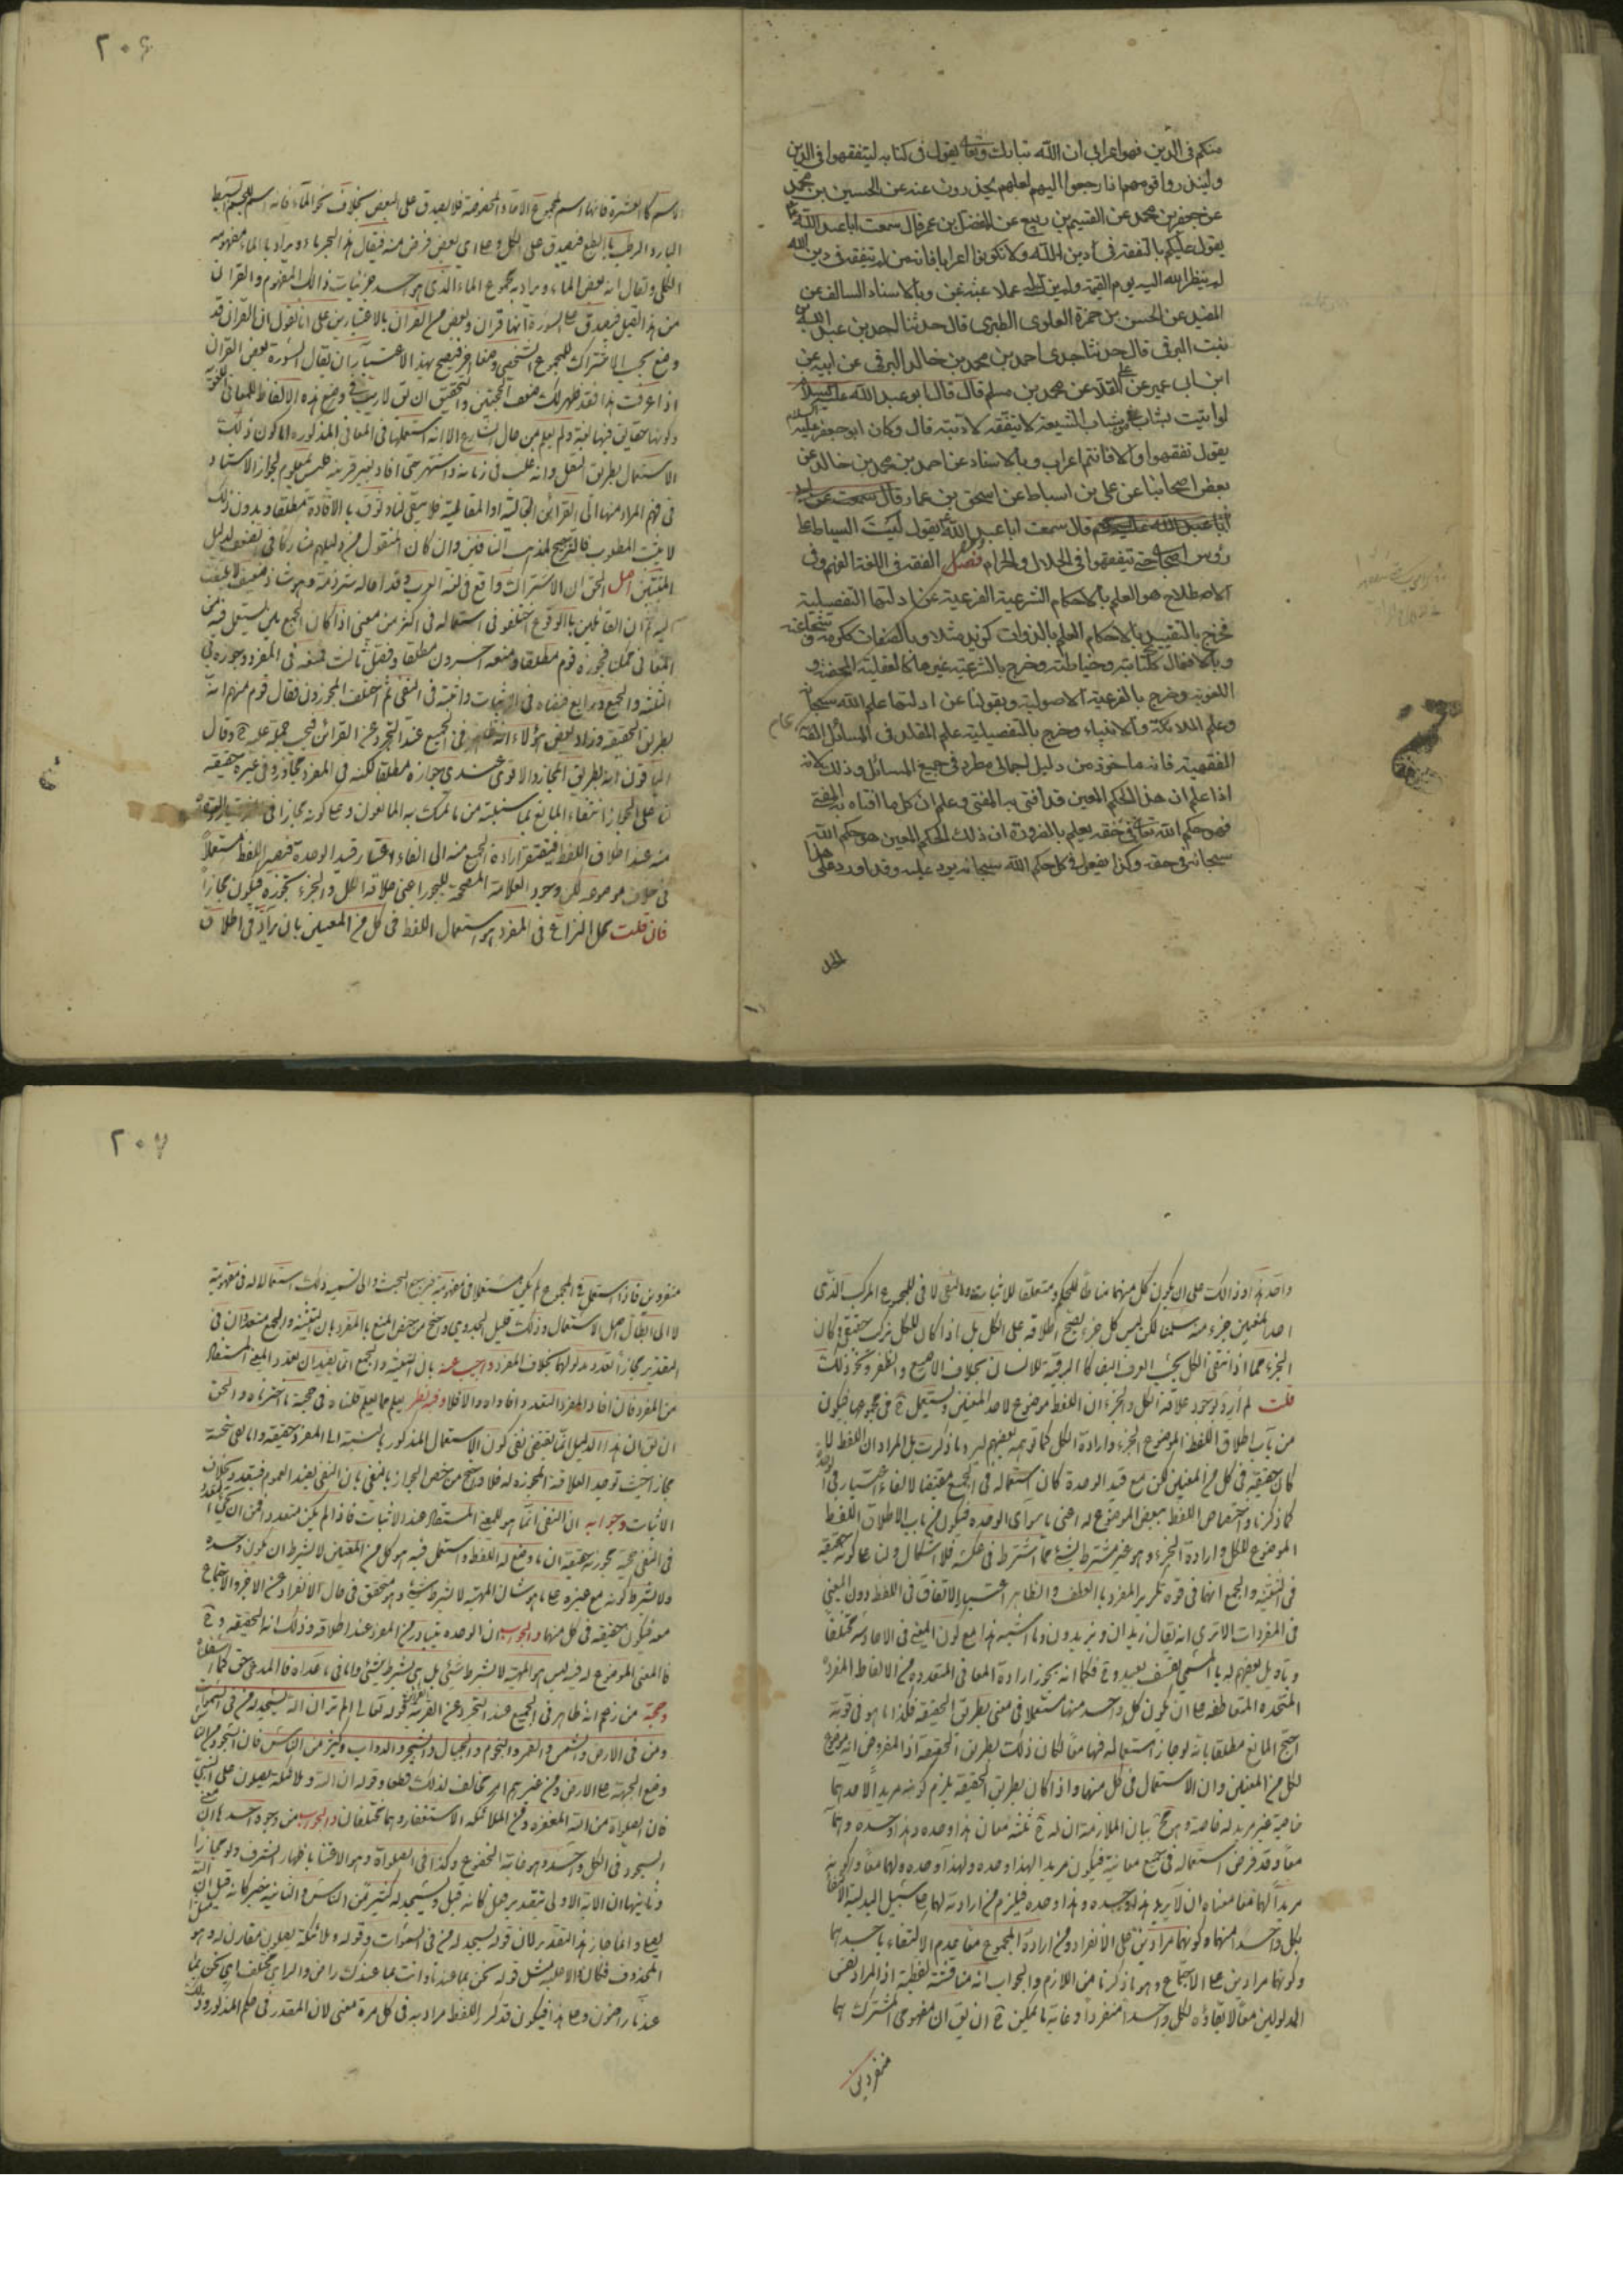 منكم في الدين فهو اعرابي ان الله تبارك وتعالى يقول في كتابه ليتفقهوا في الدين
ولينذروا قومهم اذا رجعوا اليهم لعلهم يحذرون عنه عن الحسين بن محمد
عن جعفر بن محمد عن القسيم بن ربيع عن المفضل بن عمر قال سمعت ابا عبد الله
يقول عليكم بالتفقه في دين الله ولا تكونوا اعرابا فانه من لم يتفقه في دين الله
لم ينظر الله اليه يوم القيمة ولم يزك له عملا عنه عن وبالاسناد السالف عن
المفيد عن الحسن بن حمزة العلوي الطبري قال حدثنا احمد بن عبد الله بن
بنت البرقي قال حدثنا جدي احمد بن محمد بن خالد البرقي عن ابيه عن
ابن ابي عمير عن العلاء عن محمد بن مسلم قال قال ابو عبد الله عليه السلام
لو اتيت بشاب من شباب الشيعة لا يتفقه لادبته قال وكان ابو جعفر عليه السلام
يقول تفقهوا والا فانتم اعراب وبالاسناد عن احمد بن محمد بن خالد عن
بعض اصحابنا عن علي بن اسباط عن اسحق بن عمار قال سمعت
قال سمعت ابا عبد الله يقول ليت السياط على
رؤس اصحابي حتى يتفقهوا في الحلال والحرام فصل الفقه في اللغة الفهم وفي
الاصطلاح هو العلم بالاحكام الشرعية الفرعية عن ادلتها التفصيلية
فخرج بالتقييد بالاحكام العلم بالذوات كزيد مثلا وبالصفات ككرمه وشجاعته
وبالافعال ككتابته وخياطته وخرج بالشرعية غيرها كالعقلية المحضة و
اللغوية وخرج بالفرعية الاصولية وبقولنا عن ادلتها علم الله سبحانه
وعلم الملائكة والانبياء وخرج بالتفصيلية علم المقلد في المسائل
الفقهية فانه ماخوذ من دليل اجمالي مطرد في جميع المسائل وذلك لانه
اذا علم ان هذا الحكم المعين قد افتى به المفتي وعلم ان كل ما افتاه به المفتي
فهو حكم الله تعالى في حقه يعلم بالضرورة ان ذلك الحكم المعين هو حكم الله
سبحانه في حقه وكذا يفعل في كل حكم الله سبحانه يرد عليه وقد اورد على هذا
الحد
٢٠٦
الاسم كالعشرة فانها اسم لمجموع الاحاد المخصوصة فلا يصدق على البعض بخلاف نحو الماء فانه اسم للجسم البسيط
البارد الرطب بالطبع فيصدق على الكل وعلى اي بعض فرض منه فيقال هذا البحر ماء ويراد بالماء مفهومه
الكلي ويقال انه بعض الماء ويراد به مجموع الماء الذي هو احد جزئيات ذلك المفهوم والقران
من هذا القبيل فيصدق على السورة انها قران وبعض من القران بالاعتبارين على انا نقول ان القران قد
وضع بحسب الاشتراك للمجموع الشخصي وضعا اخر فيصح بهذا الاعتبار ان يقال السورة بعض القران
اذا عرفت هذا فقد ظهر لك ضعف الحجتين والتحقيق ان يق لا ريب في وضع هذه الالفاظ للمعاني اللغوية
وكونها حقائق فيها لغة ولم يعلم من حال الشارع الا انه استعملها في المعاني المذكورة اما كون ذلك
الاستعمال بطريق النقل وانه غلب في زمانه واشتهر حتى افاد بغير قرينة فليس بمعلوم لجواز الاستناد
في فهم المراد منها الى القرائن الحالية او المقالية فلا يبقى لنا وثوق بالافادة مطلقا وبدون ذلك
لا يثبت المطلوب فالترجيح لمذهب النافين وان كان المنقول من دليلهم مشاركا في الضعف لدليل
المثبتين اصل الحق ان الاشتراك واقع في لغة العرب وقد احاله شرذمة وهو شاذ ضعيف لا يلتفت
اليه ثم ان القائلين بالوقوع اختلفوا في استعماله في اكثر من معنى اذا كان الجمع بين يستعمل فيه من
المعاني ممكنا فجوزه قوم مطلقا ومنعه اخرون مطلقا وفصل ثالث فمنعه في المفرد وجوزه في
التثنية والجمع ورابع فنفاه في الاثبات واثبته في النفي ثم اختلف المجوزون فقال قوم منهم انه
بطريق الحقيقة وزاد بعض هؤلاء انه ظاهر في الجميع عند التجرد عن القرائن فيجب حمله عليه ح وقال
الباقون انه بطريق المجاز والاقوى عندي جوازه مطلقا لكنه في المفرد مجاز وفي غيره حقيقة
لنا على الجواز انتفاء المانع بما سنبينه من ما تمسك به المانعون وعلى كونه مجازا في المفرد تبادر الوحدة
منه عند اطلاق اللفظ فيفتقر ارادة الجميع منه الى الغاء اعتبار قيد الوحدة فيصير اللفظ مستعملا
في خلاف موضوعه لكن وجود العلاقة المصححة للتجوز اعني علاقة الكل والجزء تجوزه فيكون مجازا
فان قلت محل النزاع في المفرد هو استعمال اللفظ في كل من المعنيين بان يراد في اطلاق
واحد هذا وذاك على ان يكون كل منهما مناطا للحكم ومتعلقا للاثبات والنفي لا في المجموع المركب الذي
احد المعنيين جزء منه سلمنا لكن ليس كل جزء يصح اطلاقه على الكل بل اذا كان للكل تركب حقيقي وكان
الجزء مما اذا انتفى انتفى الكل بحسب العرف ايضا كالرقبة للانسان بخلاف الاصبع والظفر ونحو ذلك
قلت لم ارد بوجود علاقة الكل والجزء ان اللفظ موضوع لاحد المعنيين ويستعمل ح في مجموعهما فيكون
من باب اطلاق اللفظ الموضوع للجزء وارادة الكل كما توهمه بعضهم ليرد ما ذكرت بل المراد ان اللفظ لما
كان حقيقة في كل من المعنيين لكن مع قيد الوحدة كان استعماله في الجميع مقتضيا لالغاء اعتبار قيد الوحدة
كما ذكرنا واختصاص اللفظ ببعض الموضوع له اعني ما سوى الوحدة فيكون من باب الاطلاق اللفظ
الموضوع للكل وارادة الجزء وهو غير مشترط بشئ مما اشترط في عكسه فلا اشكال ولنا على كونه حقيقة
في التثنية والجمع انهما في قوة تكرير المفرد بالعطف والظاهر اعتبار الاتفاق في اللفظ دون المعنى
في المفردات الا ترى انه يقال زيدان وزيدون وما اشبه هذا مع كون المعنى في الاحاد مختلفا
وتاويل بعضهم له بالمسمى تعسف بعيد وح فكما انه يجوز ارادة المعاني المتعددة من الالفاظ المفردة
المتحدة المتعاطفة على ان يكون كل واحد منها مستعملا في معنى بطريق الحقيقة فكذا ما هو في قوته
احتج المانع مطلقا بانه لو جاز استعماله فيهما معا لكان ذلك بطريق الحقيقة اذ المفروض انه موضوع
لكل من المعنيين وان الاستعمال في كل منهما واذا كان بطريق الحقيقة يلزم كونه مريدا لاحدهما
خاصة غير مريد له خاصة وهو مح بيان الملازمة ان له ح ثلثة معان هذا وحده وهذا وحده وهما
معا وقد فرض استعماله في جميع معانيه فيكون مريدا لهذا وحده ولهذا وحده ولهما معا وكونه
مريدا لهما معا معناه ان لا يريد هذا وحده وهذا وحده فيلزم من ارادته لهما على سبيل البدلية الاكتفاء
بكل واحد منهما وكونهما مرادين على الانفراد ومن ارادة المجموع معا عدم الاكتفاء باحدهما
وكونهما مرادين على الاجتماع وهو ما ذكرنا من اللازم والجواب انه مناقشة لفظية اذ المراد نفس
المدلولين معا لا بقاؤه لكل واحد منفردا وغاية ما يمكن ح ان يق ان مفهومي المشترك هما
منفردين
٢٠٧
منفردين فاذا استعمل في المجموع لم يكن مستعملا في مفهوميه فيرجع البحث الى تسمية ذلك استعمالا له في مفهوميه
لا الى ابطال اصل الاستعمال وذلك قليل الجدوى واحتج من خص المنع بالمفرد بان التثنية والجمع متعددان في
التقدير فجاز تعدد مدلوليهما بخلاف المفرد واجيب عنه بان التثنية والجمع انما يفيدان تعدد المعنى المستفاد
من المفرد فان افاد المفرد التعدد افاداه والا فلا وفيه نظر يعلم مما قلناه في حجة ما اخترناه والحق
ان يق ان هذا الدليل انما يقتضي نفي كون الاستعمال المذكور بالنسبة الى المفرد حقيقة واما نفي صحته
مجازا حيث توجد العلاقة المجوزة له فلا واحتج من خص الجواز بالنفي بان النفي يفيد العموم فيتعدد بخلاف
الاثبات وجوابه ان النفي انما هو للمعنى المستفاد عند الاثبات فاذا لم يكن متعددا فمن اين يجئ التعدد
في النفي حجة مجوزيه حقيقة ان ما وضع له اللفظ واستعمل فيه هو كل من المعنيين لا بشرط ان يكون وحده
ولا بشرط كونه مع غيره على ما هو شان المهية لا بشرط شئ وهو متحقق في حال الانفراد عن الاخر والاجتماع
معه فيكون حقيقة في كل منهما والجواب ان الوحدة تتبادر من المفرد عند اطلاقه وذلك اية الحقيقة وح
فالمعنى الموضوع له فيه ليس هو المهية لا بشرط شئ بل هي بشرط شئ واما في ما عداه فالمدعى حق كما اسلفناه
وحجة من زعم انه ظاهر في الجميع عند التجرد عن القرينة قوله تعالى الم تر ان الله يسجد له من في السموات
ومن في الارض والشمس والقمر والنجوم والجبال والشجر والدواب وكثير من الناس فان السجود من الناس
وضع الجبهة على الارض ومن غيرهم امر مخالف لذلك قطعا وقوله ان الله وملائكته يصلون على النبي
فان الصلوة من الله المغفرة ومن الملائكة الاستغفار وهما مختلفان والجواب من وجوه احدها ان معنى
السجود في الكل واحد وهو غاية الخضوع وكذا في الصلوة وهو الاعتناء باظهار الشرف ولو مجازا
وثانيها ان الاية الاولى بتقدير فعل كانه قيل ويسجد له كثير من الناس والثانية بتقدير خبر كانه قيل ان الله
يصلي وانما جاز هذا التقدير لان قوله يسجد له من في السموات وقوله وملائكته يصلون مقارن له وهو مثل
المحذوف فكان دالا عليه مثل قوله نحن بما عندنا وانت بما عندك راض والراي مختلف اي نحن بما
عندنا راضون وعلى هذا فيكون قد كرر اللفظ مرادا به في كل مرة معنى لان المقدر في حكم المذكور وذلك